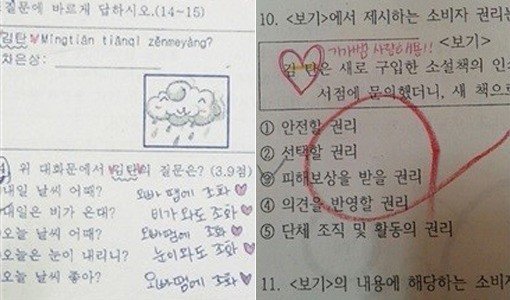 질문에 바르게 답하시오.(14~15)
김탄♥ Míngtiān tiānqì zěnmeyàng?
차은상:
위 대화문에서 김탄의 질문은? (3.9점)
내일 날씨 어때? 오빠 땜에 조화 ♥
내일은 비가 온대? 비가 와도 조화 ♥
오늘 날씨 어때? 오빠땜에 조화 ♥
오늘은 눈이 내리니? 눈이 와도 조화 ♥
오늘 날씨 좋아? 오빠 땜에 조화 ♥
10. <보기>에서 제시하는 소비자 권리는
사랑해용!! <보기>
김 탄은 새로 구입한 소설책의
서점에 문의했더니, 새 책으로
① 안전할 권리
② 선택할 권리
③ 피해보상을 받을 권리
④ 의견을 반영할 권리
⑤ 단체 조직 및 활동의 권리
11. <보기>의 내용에 해당하는 소비